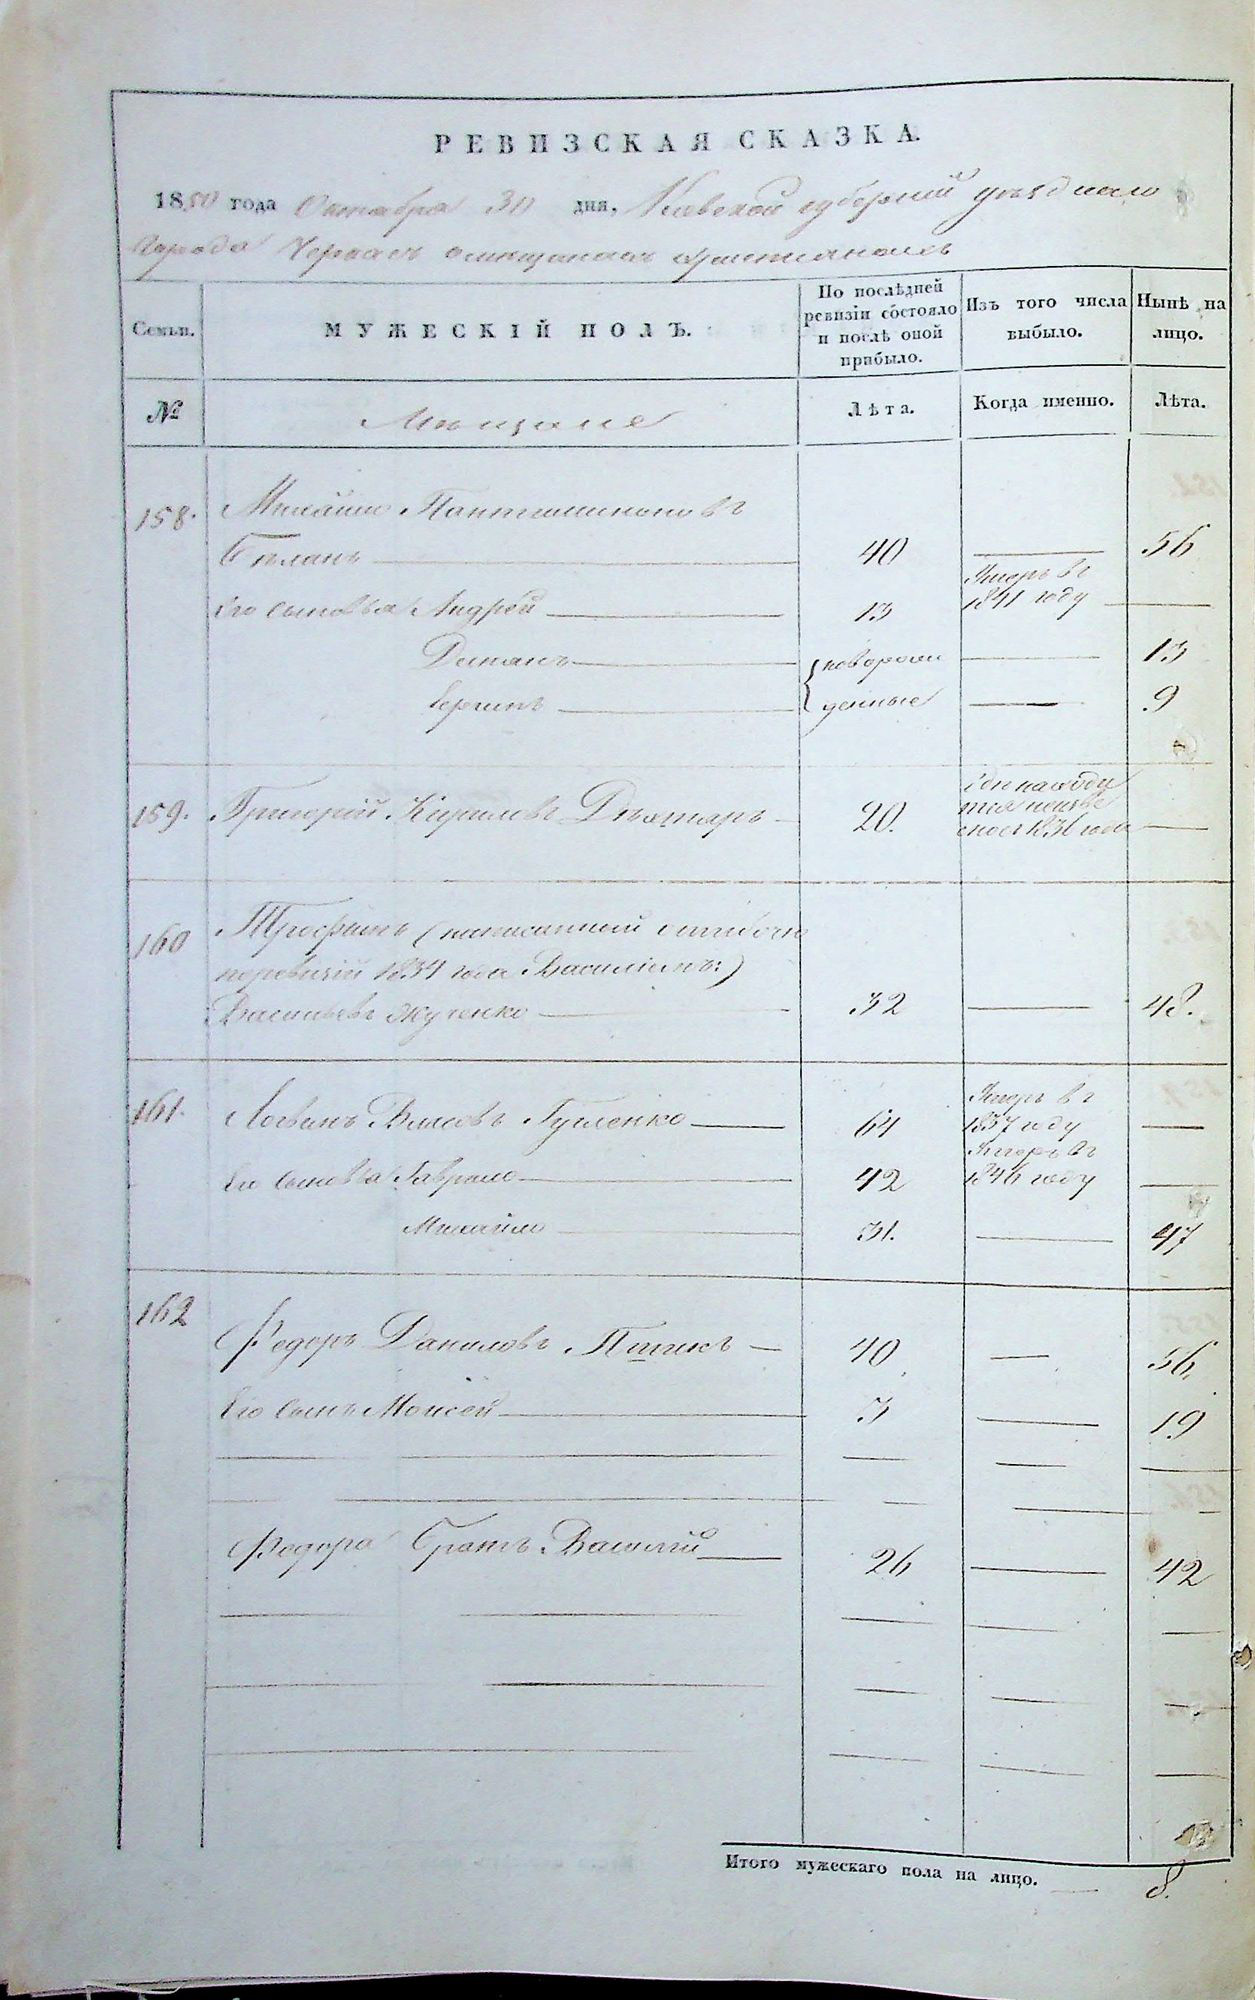 РЕВИЗСКАЯ СКАЗКА.
1850 года Октября 30 дня, Киевской губернии уѣзднаго
города Черкасъ
Семьи.
МУЖЕСКІЙ ПОЛЪ.
По послѣдней ревизіи состояло и послѣ оной прибыло.
Изъ того числа выбыло.
Нынѣ на лицо.
№
Мѣщане
Лѣта.
Когда именно.
Лѣта.
158. Михайло Пантилимоновъ
Бѣланъ 40 56
Его сыновья Андрей 13 Умеръ въ 1841 году
новорож 13
денные 9
159. Григорій Кириловъ Дѣхтярь 20. 1836 года
160 Трофимъ (написанный ошибочно
по ревизіи 1834 года Василіемъ:)
Васильевъ Жученко 32 48.
161. Логвинъ Власовъ 64 Умеръ въ 1837 году
Его сыновья Гаврило 42 Умеръ въ 1846 году
Михайло 31. 47
162 Федоръ Даниловъ 40 56.
Его сынъ Моисей 3 19
Федора братъ Василій 26 42
Итого мужескаго пола на лицо. 8.